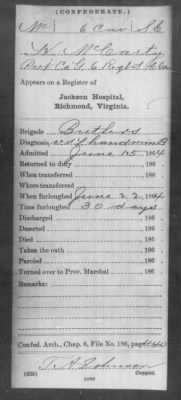 (CONFEDERATE.)
Mc 6 Cav S.C.
H. McCarty
Pvt Co. G, 6 Regt S.C. Cav
Appears on a Register of
Jackson Hospital,
Richmond, Virginia.
Brigade Butlers
Diagnosis hand
Admitted June 15, 1864
Returned to duty , 186 .
When transferred , 186 .
Where transferred
When furloughed June 22, 1864
Time furloughed 30 days
Discharged , 186 .
Deserted , 186 .
Died , 186 .
Took the oath , 186 .
Paroled , 186 .
Turned over to Prov. Marshal , 186 .
Remarks:
Confed. Arch., Chap. 6, File No. 186, page
T. A. Johnson
(635) Copyist.